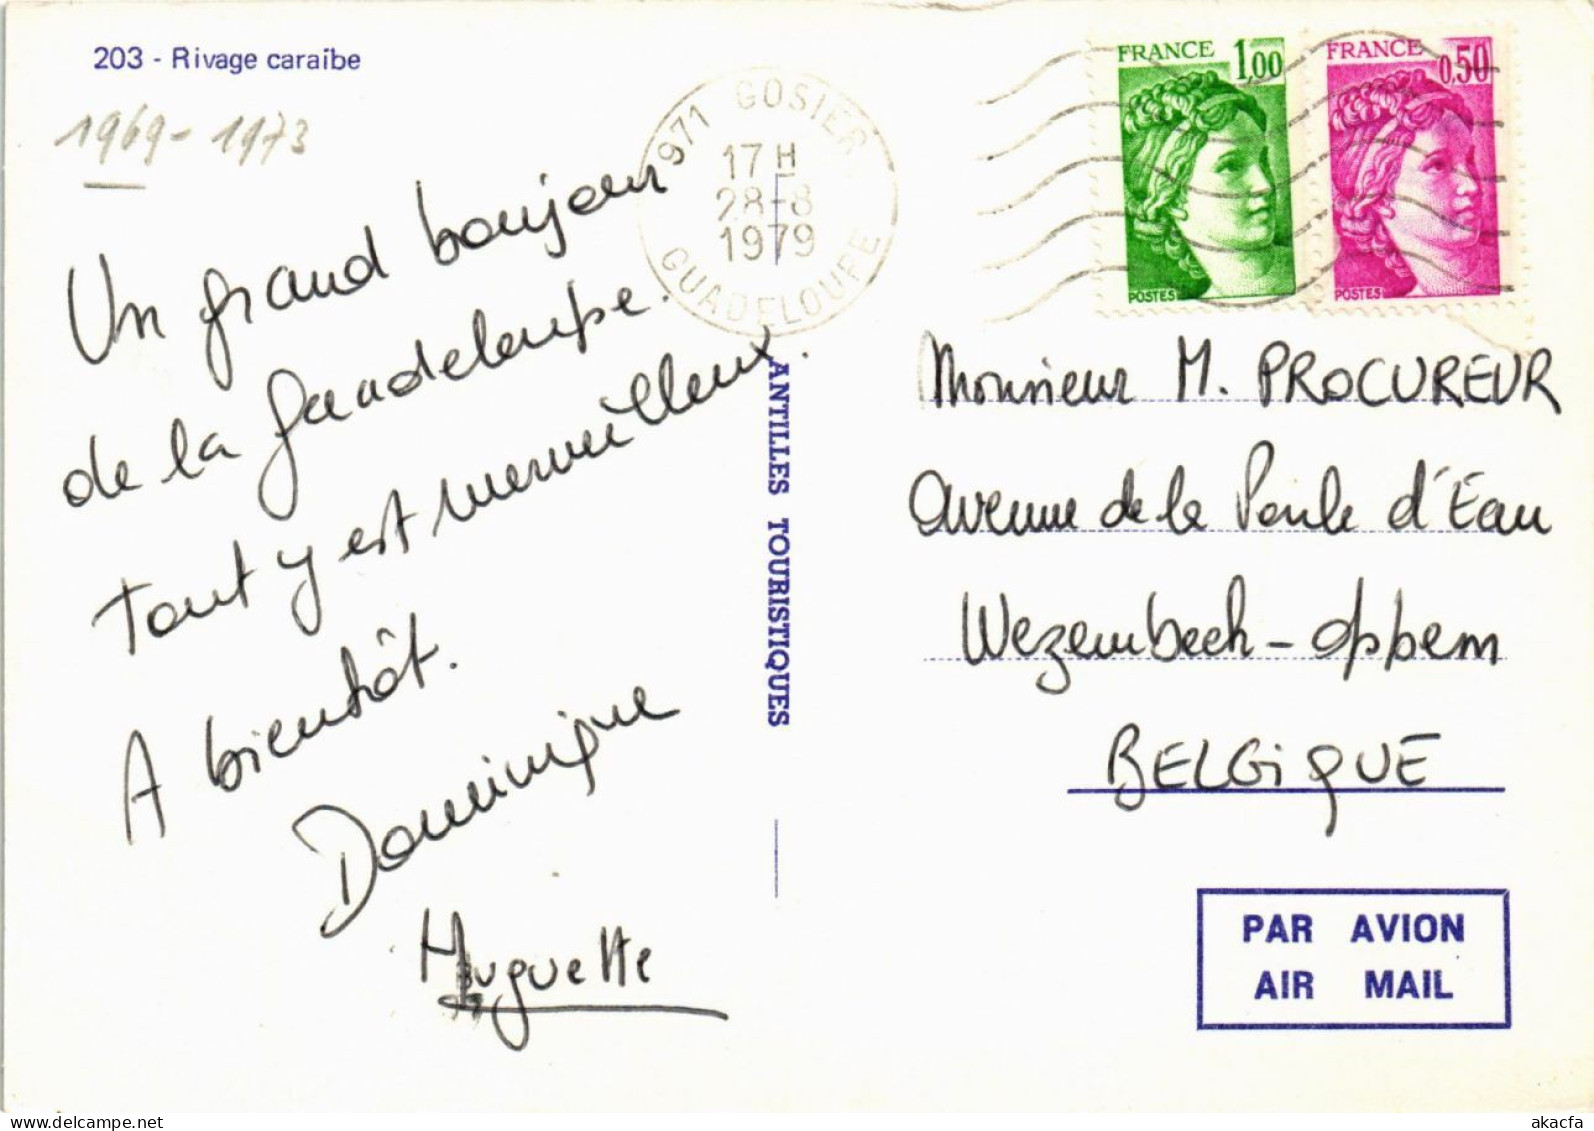 203 - Rivage caraïbe
1969 - 1973
Un grand bonjour
de la Guadeloupe.
Tout y est merveilleux.
A bientôt.
Dominique
Huguette
971 GOSIER
17 H
28-8
1979
GUADELOUPE
FRANCE 1,00
POSTES
FRANCE 0,50
POSTES
ANTILLES TOURISTIQUES
Monsieur M. PROCUREUR
avenue de la Poule d'Eau
Wezembeek-oppem
BELGiQUE
PAR AVION
AIR MAIL
www.delcampe.net
akacfa